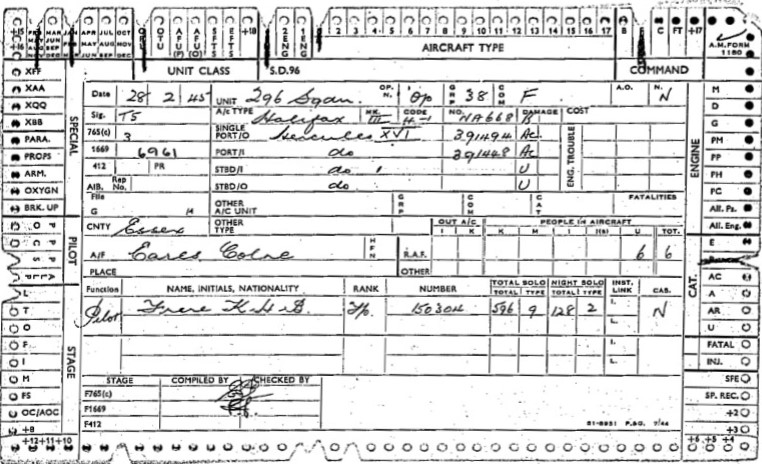 +15 MAR JUN JAN FEB APR MAY JUN JUL AUG OCT NOV DEC OTU AFU (P) AFU (O) SFTS EFTS +18 2 ENG 1 ENG 1 2 3 4 5 6 7 8 9 10 11 12 13 14 15 16 17 B C FT +17
+16 AIRCRAFT TYPE A.M. FORM 1180
XFF UNIT CLASS S.D.96 COMMAND
XAA Date 28 2 45 UNIT 296 Sqdn. OP. N. Op GRP 38 COM F A.O. N. N M
XQQ Sig. T5 A/c TYPE Halifax MK. III CODE NO. NA668 DAMAGE B COST D
XBB SPECIAL 765(c) 3 SINGLE PORT/O Hercules XVI 391494 Ac ENG. TROUBLE ENGINE G
PARA. 1669 6961 PORT/I do 391448 Ac PM
PROPS 412 PR STBD/I do U PP
ARM. AIB. Rep No. STBD/O do U PH
OXYGN File OTHER A/C UNIT GRP COM CAT FATALITIES FC
BRK. UP G All. Ps.
CNTY Essex OTHER TYPE OUT A/C PEOPLE IN AIRCRAFT All. Eng.
PILOT I K K M I I(s) U TOT. E
A/F Earls Colne HFN R.A.F. 6 6
PLACE OTHER CAT. AC
L Function NAME, INITIALS, NATIONALITY RANK NUMBER TOTAL SOLO NIGHT SOLO INST. LINK CAS. A
TOTAL TYPE TOTAL TYPE
T Pilot Frere K.H.B. 150304 596 9 128 2 I. L. N AR
O U
F I. L. FATAL
I STAGE INJ.
M STAGE COMPILED BY CHECKED BY SFE
FS F765(c) SP. REC.
OC/AOC F1669 +2
+8 F412 51-8951 P.50. 7/44 +3
+12 +11 +10 +6 +5 +4